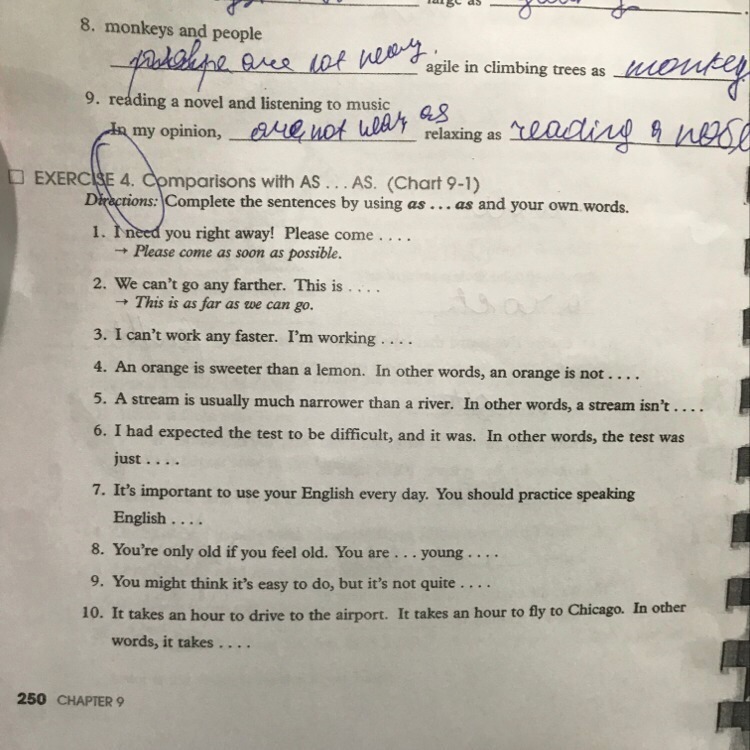 large as
8. monkeys and people
are not neary agile in climbing trees as monkey
9. reading a novel and listening to music
as
In my opinion, are not near relaxing as reading a nove
EXERCISE 4. Comparisons with AS . . . AS. (Chart 9-1)
Directions: Complete the sentences by using as . . . as and your own words.
1. I need you right away! Please come . . . .
→ Please come as soon as possible.
2. We can't go any farther. This is . . . .
→ This is as far as we can go.
3. I can't work any faster. I'm working . . . .
4. An orange is sweeter than a lemon. In other words, an orange is not . . . .
5. A stream is usually much narrower than a river. In other words, a stream isn't . . . .
6. I had expected the test to be difficult, and it was. In other words, the test was
just . . . .
7. It's important to use your English every day. You should practice speaking
English . . . .
8. You're only old if you feel old. You are . . . young . . . .
9. You might think it's easy to do, but it's not quite . . . .
10. It takes an hour to drive to the airport. It takes an hour to fly to Chicago. In other
words, it takes . . . .
250 CHAPTER 9